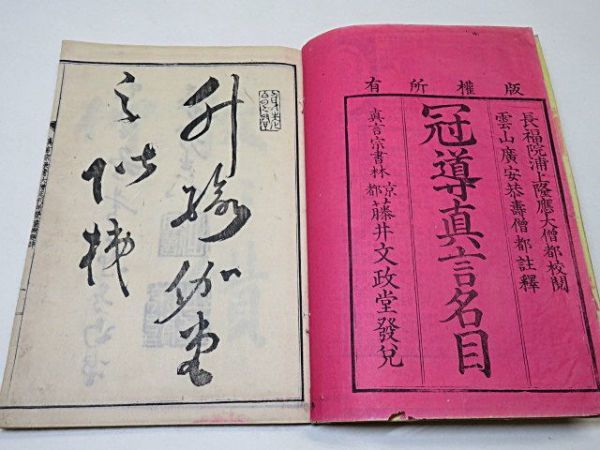 版權所有
長福院浦上隆應大僧都校閲
雲山廣安恭壽僧都註釋
冠導真言名目
真言宗書林 京都 藤井文政堂發兌
升瑜伽堂
之階梯